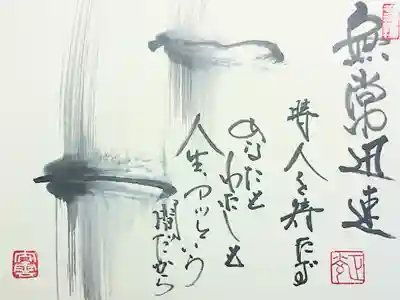 無常迅速
時人を待たず
あなたも
わたしも
人生、アッという
間だから